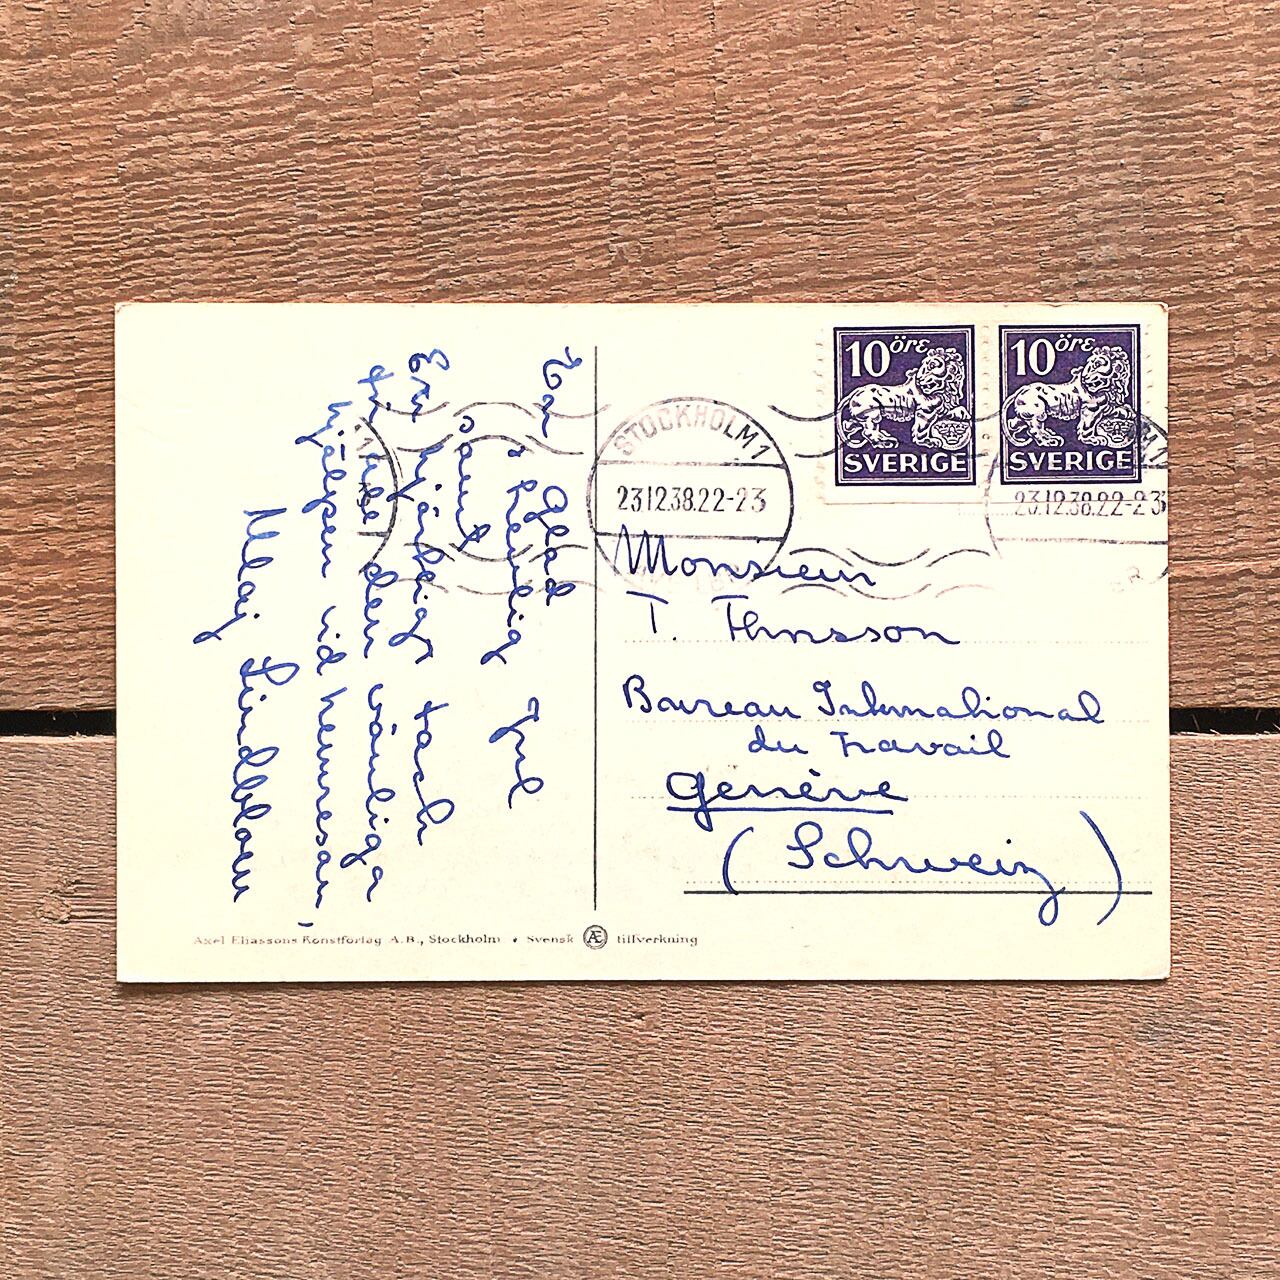 En glad
helig Jul
samt
Ett hjärtligt tack
för den vänliga
hjälpen vid hemresan,
Maj Lindblom
10 öre
SVERIGE
10 öre
SVERIGE
STOCKHOLM 1
23.12.38.22-23
23.12.38.22-23
Monsieur
T.
Bureau International
du Travail
Genève
(Schweiz)
Axel Eliassons Konstförlag A.B., Stockholm • Svensk Æ tillverkning